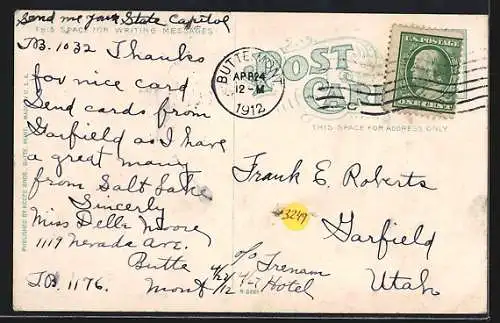 Send me your State Capitol
THIS SPACE FOR WRITING MESSAGES
J.B. 1032 Thanks
for nice card
Send cards from
Garfield as I have
a great many
from Salt Lake
Sincerely
Miss Della Moore
1119 Nevada Ave.
Butte
J.B. 1176. Mont 4/24/12
PUBLISHED BY KEEFE BROS. BUTTE, MONT.
BUTTE, MONT.
APR 24
12-M
1912
POST
CARD
THIS SPACE FOR ADDRESS ONLY
U.S. POSTAGE
ONE CENT
Frank E. Roberts
43249
Garfield
Utah
c/o Trenam
Hotel